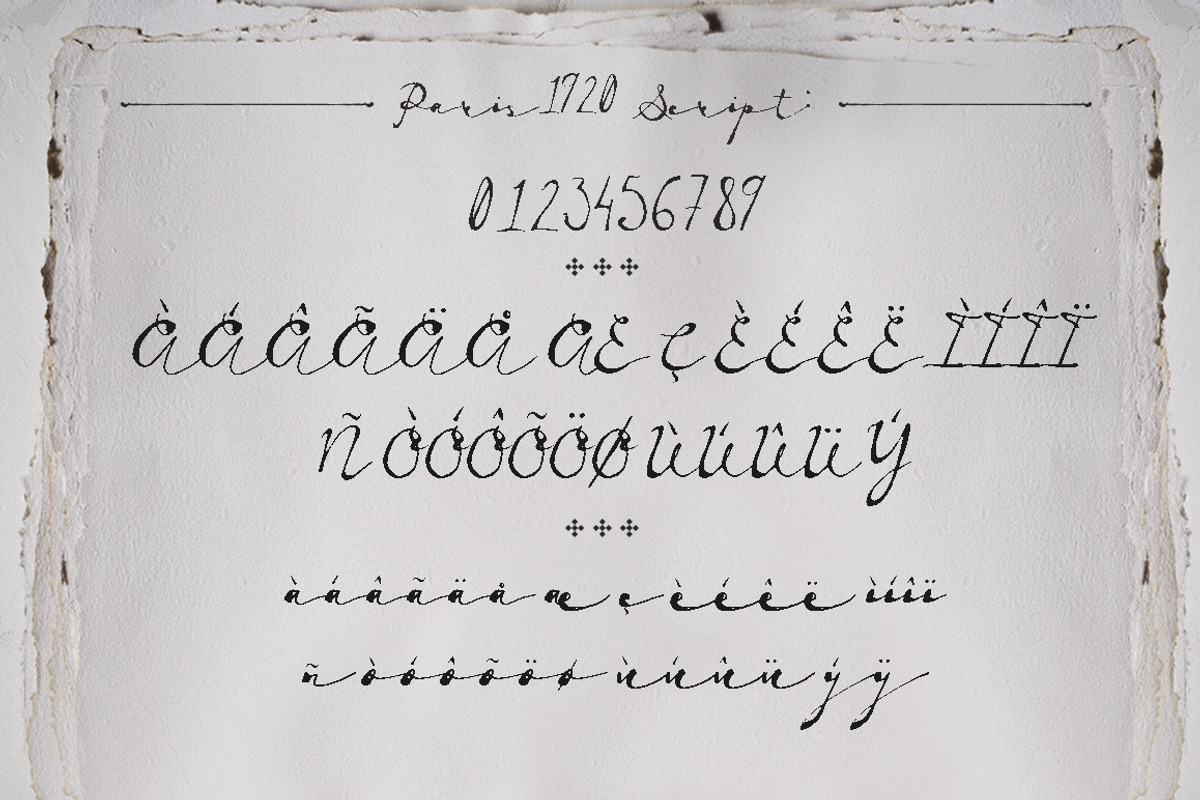 Paris 1920 Script
0123456789
ÀÁÂÃÄÅ Æ Ç ÈÉÊË ÌÍÎÏ
Ñ ÒÓÔÕÖØ ÙÚÛÜ Ý
àáâãäå æ ç èéêë ìíîï
ñ òóôõöø ùúûü ýÿ